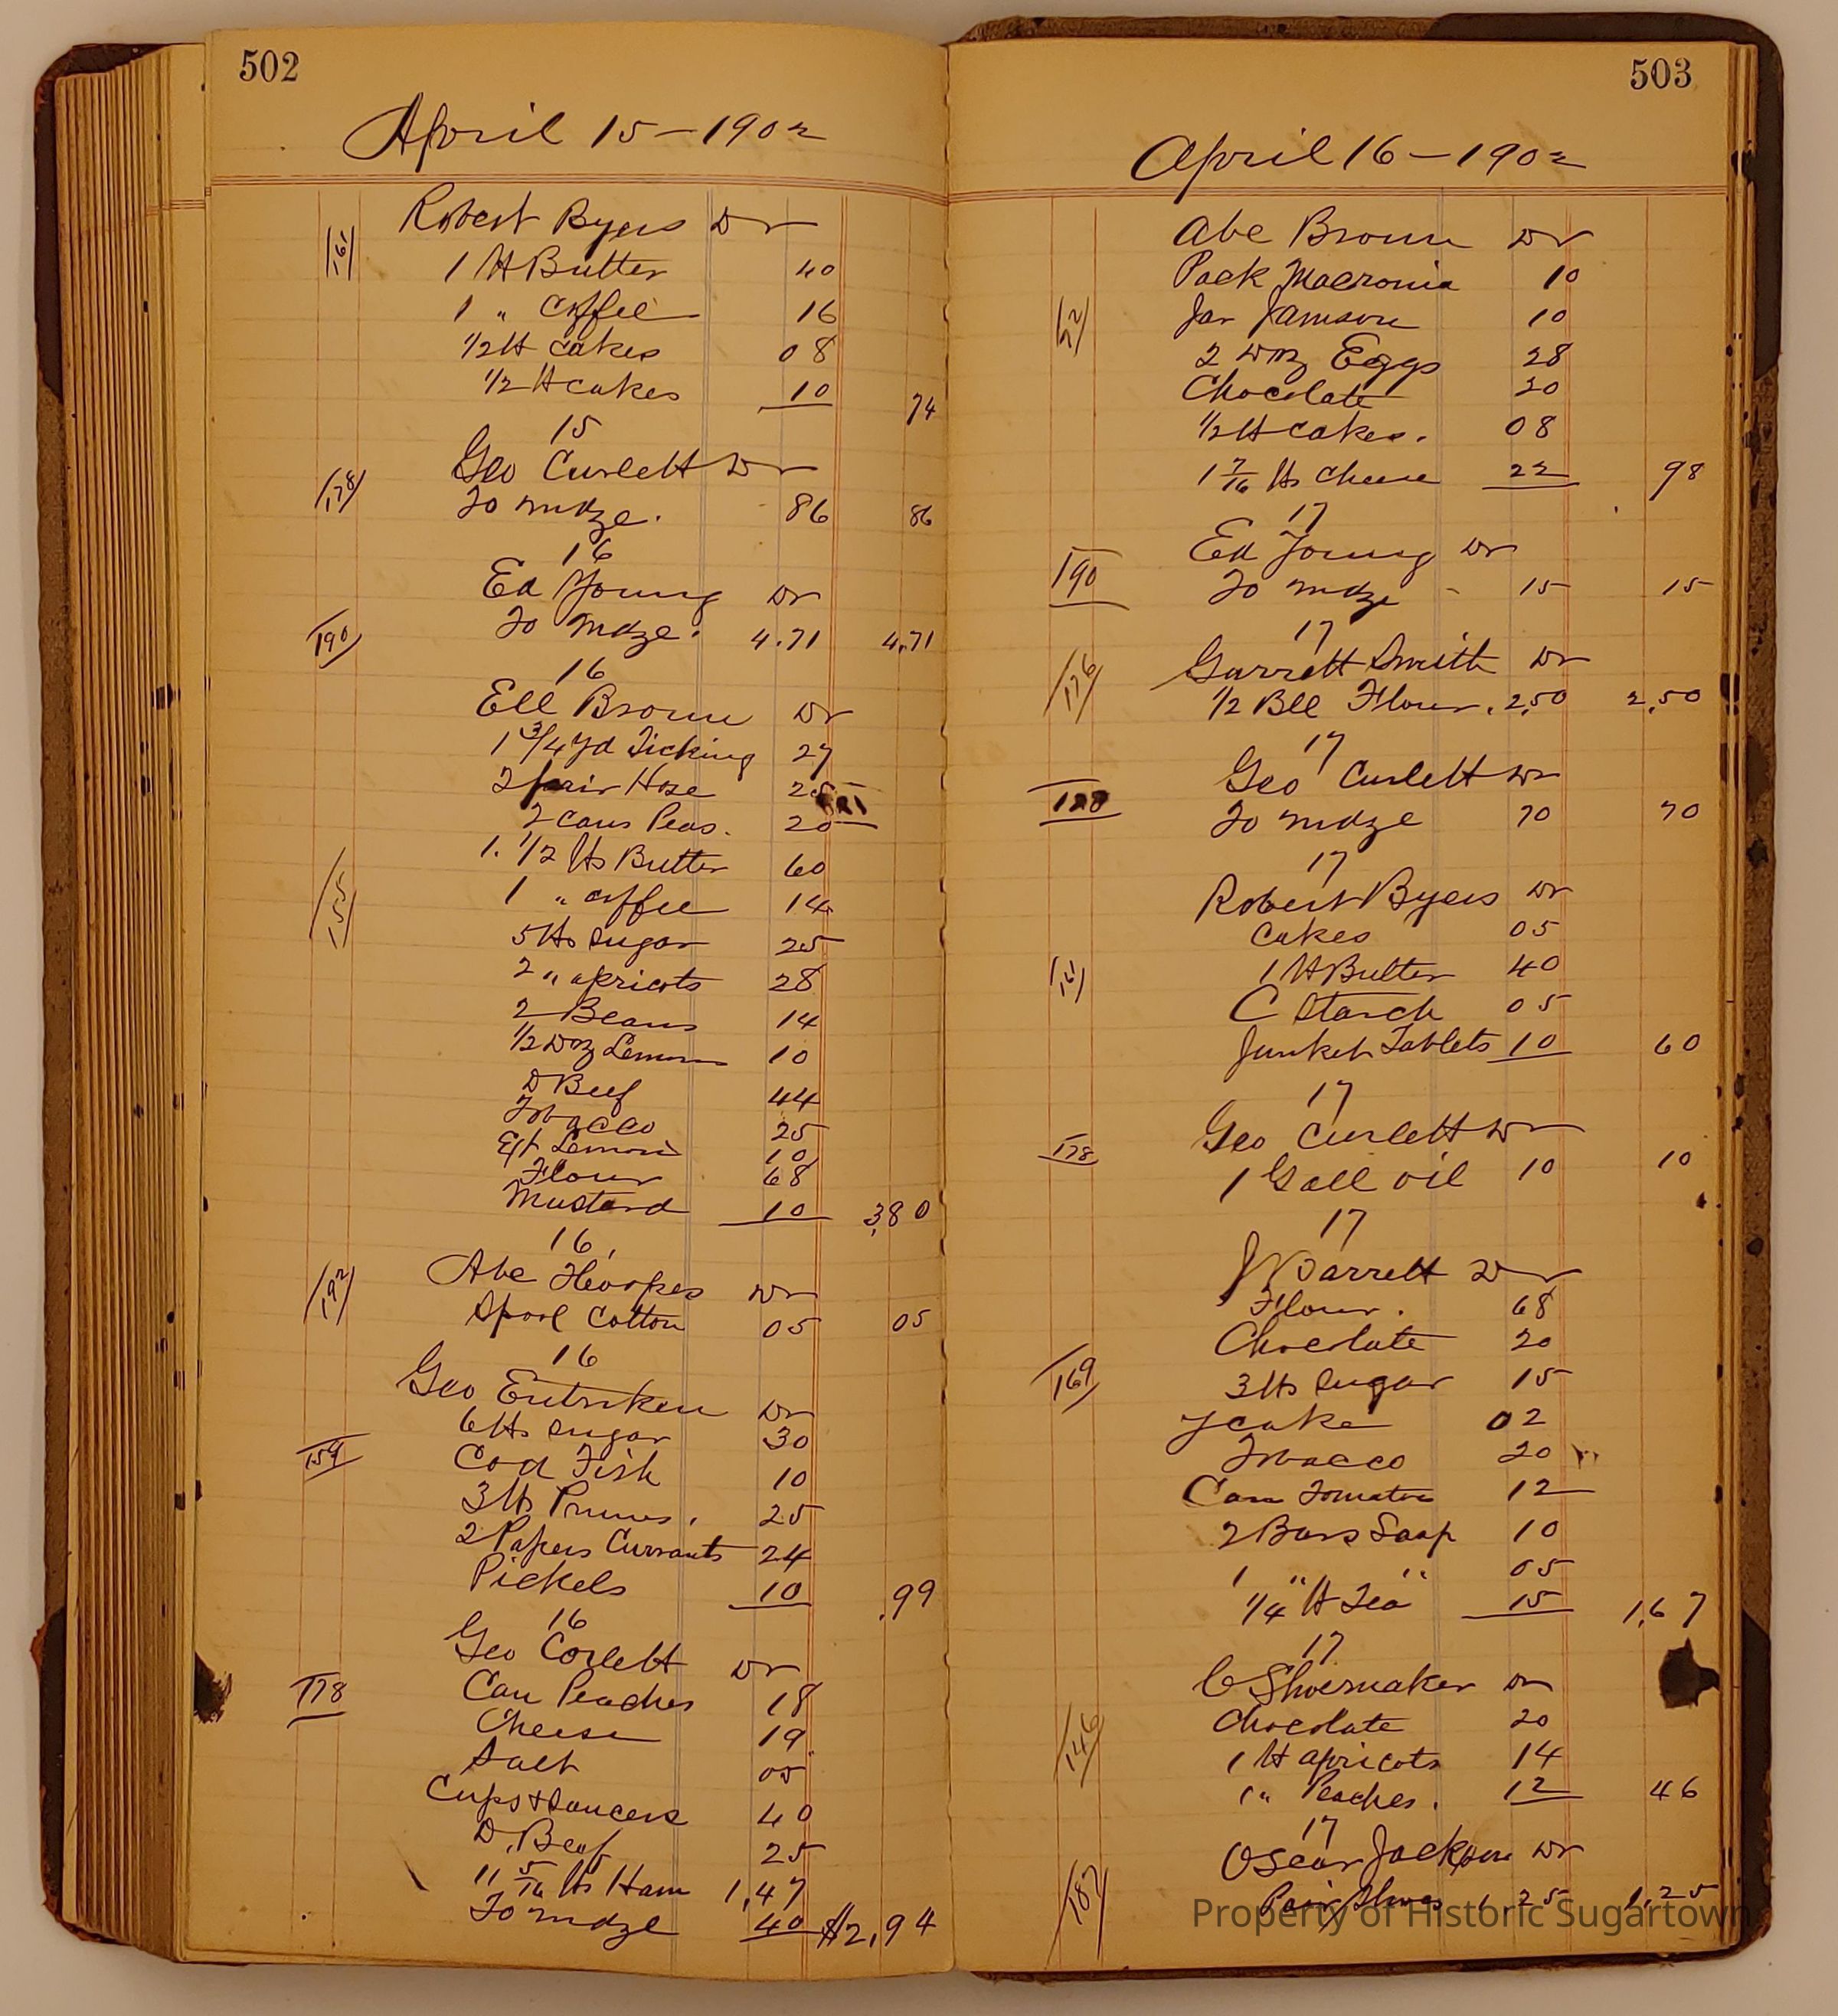 502
April 15 - 1902
Robert Byers Dr
161
1 lb Butter 40
1 " Coffee 16
1/2 lb Cakes 08
1/2 lb Cakes 10 74
15
Geo Curlett Dr
178
To Mdze. 86 86
16
Ed Young Dr
190
To Mdze. 4.71 4.71
16
Ell Brown Dr
1 3/4 yd Ticking 27
2 pair Hose 25
2 cans Peas. 20
1. 1/2 lbs Butter 60
155
1 " coffee 14
5 lbs Sugar 25
2 " apricots 28
2 Beans 14
1/2 Doz Lemons 10
D Beef 44
Tobacco 25
Ext Lemon 10
Flour 68
Mustard 10 3.80
16
Abe Hoopes Dr
192
Spool Cotton 05 05
16
Geo Entriken Dr
6 lbs Sugar 30
154
Cod Fish 10
3 lbs Prunes. 25
2 Papers Currants 24
Pickels 10 .99
16
Geo Corlett Dr
178
Can Peaches 18
Cheese 19
Salt 05
Cups & Saucers 40
D. Beef 25
11 5/16 lbs Ham 1,47
To mdze 40 $2,94
503
April 16 - 1902
Abe Brown Dr
Pack Macronia 10
52
Jar 10
2 Doz Eggs 28
Chocolate 20
1/2 lb Cakes. 08
1 7/16 lbs Cheese 22 98
17
Ed Young Dr
190
To mdze - 15 15
17
Garrett Smith Dr
176
1/2 Bll Flour. 2,50 2,50
17
Geo Curlett Dr
178
To mdze 70 70
17
Robert Byers Dr
Cakes 05
161
1 lb Butter 40
C Starch 05
Junket Tablets 10 60
17
Geo Curlett Dr
178
1 Gall oil 10 10
17
J Barrett Dr
Flour. 68
Chocolate 20
169
3 lbs Sugar 15
Y cake 02
Tobacco 20
Can Tomatoe 12
2 Bars Soap 10
1 " " 05
1/4 lb Tea 15 1,67
17
C Shoemaker Dr
Chocolate 20
146
1 lb apricots 14
1 " Peaches. 12 46
17
Oscar Jackson Dr
187
Pair Shoes 1.25 1,25
Property of Historic Sugartown